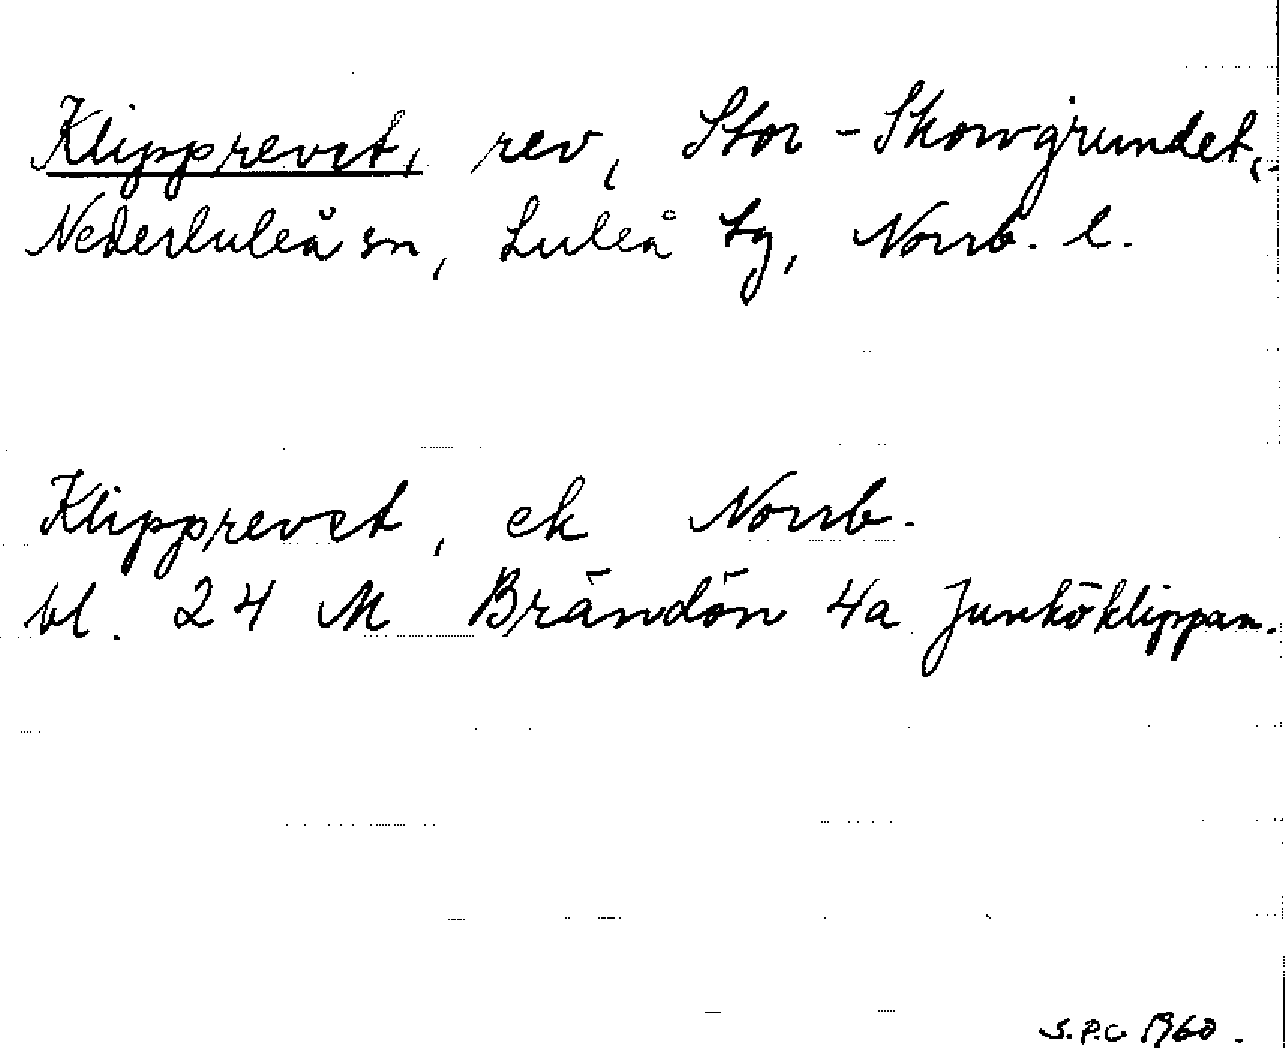 Klipprevet, rev, Stor-Skorvgrundet,
Nederluleå sn, Luleå tg, Norrb. l.
Klipprevet, ek Norrb.
bl. 24 M Brändön 4a Junköklippan.
S.P.C 1960.